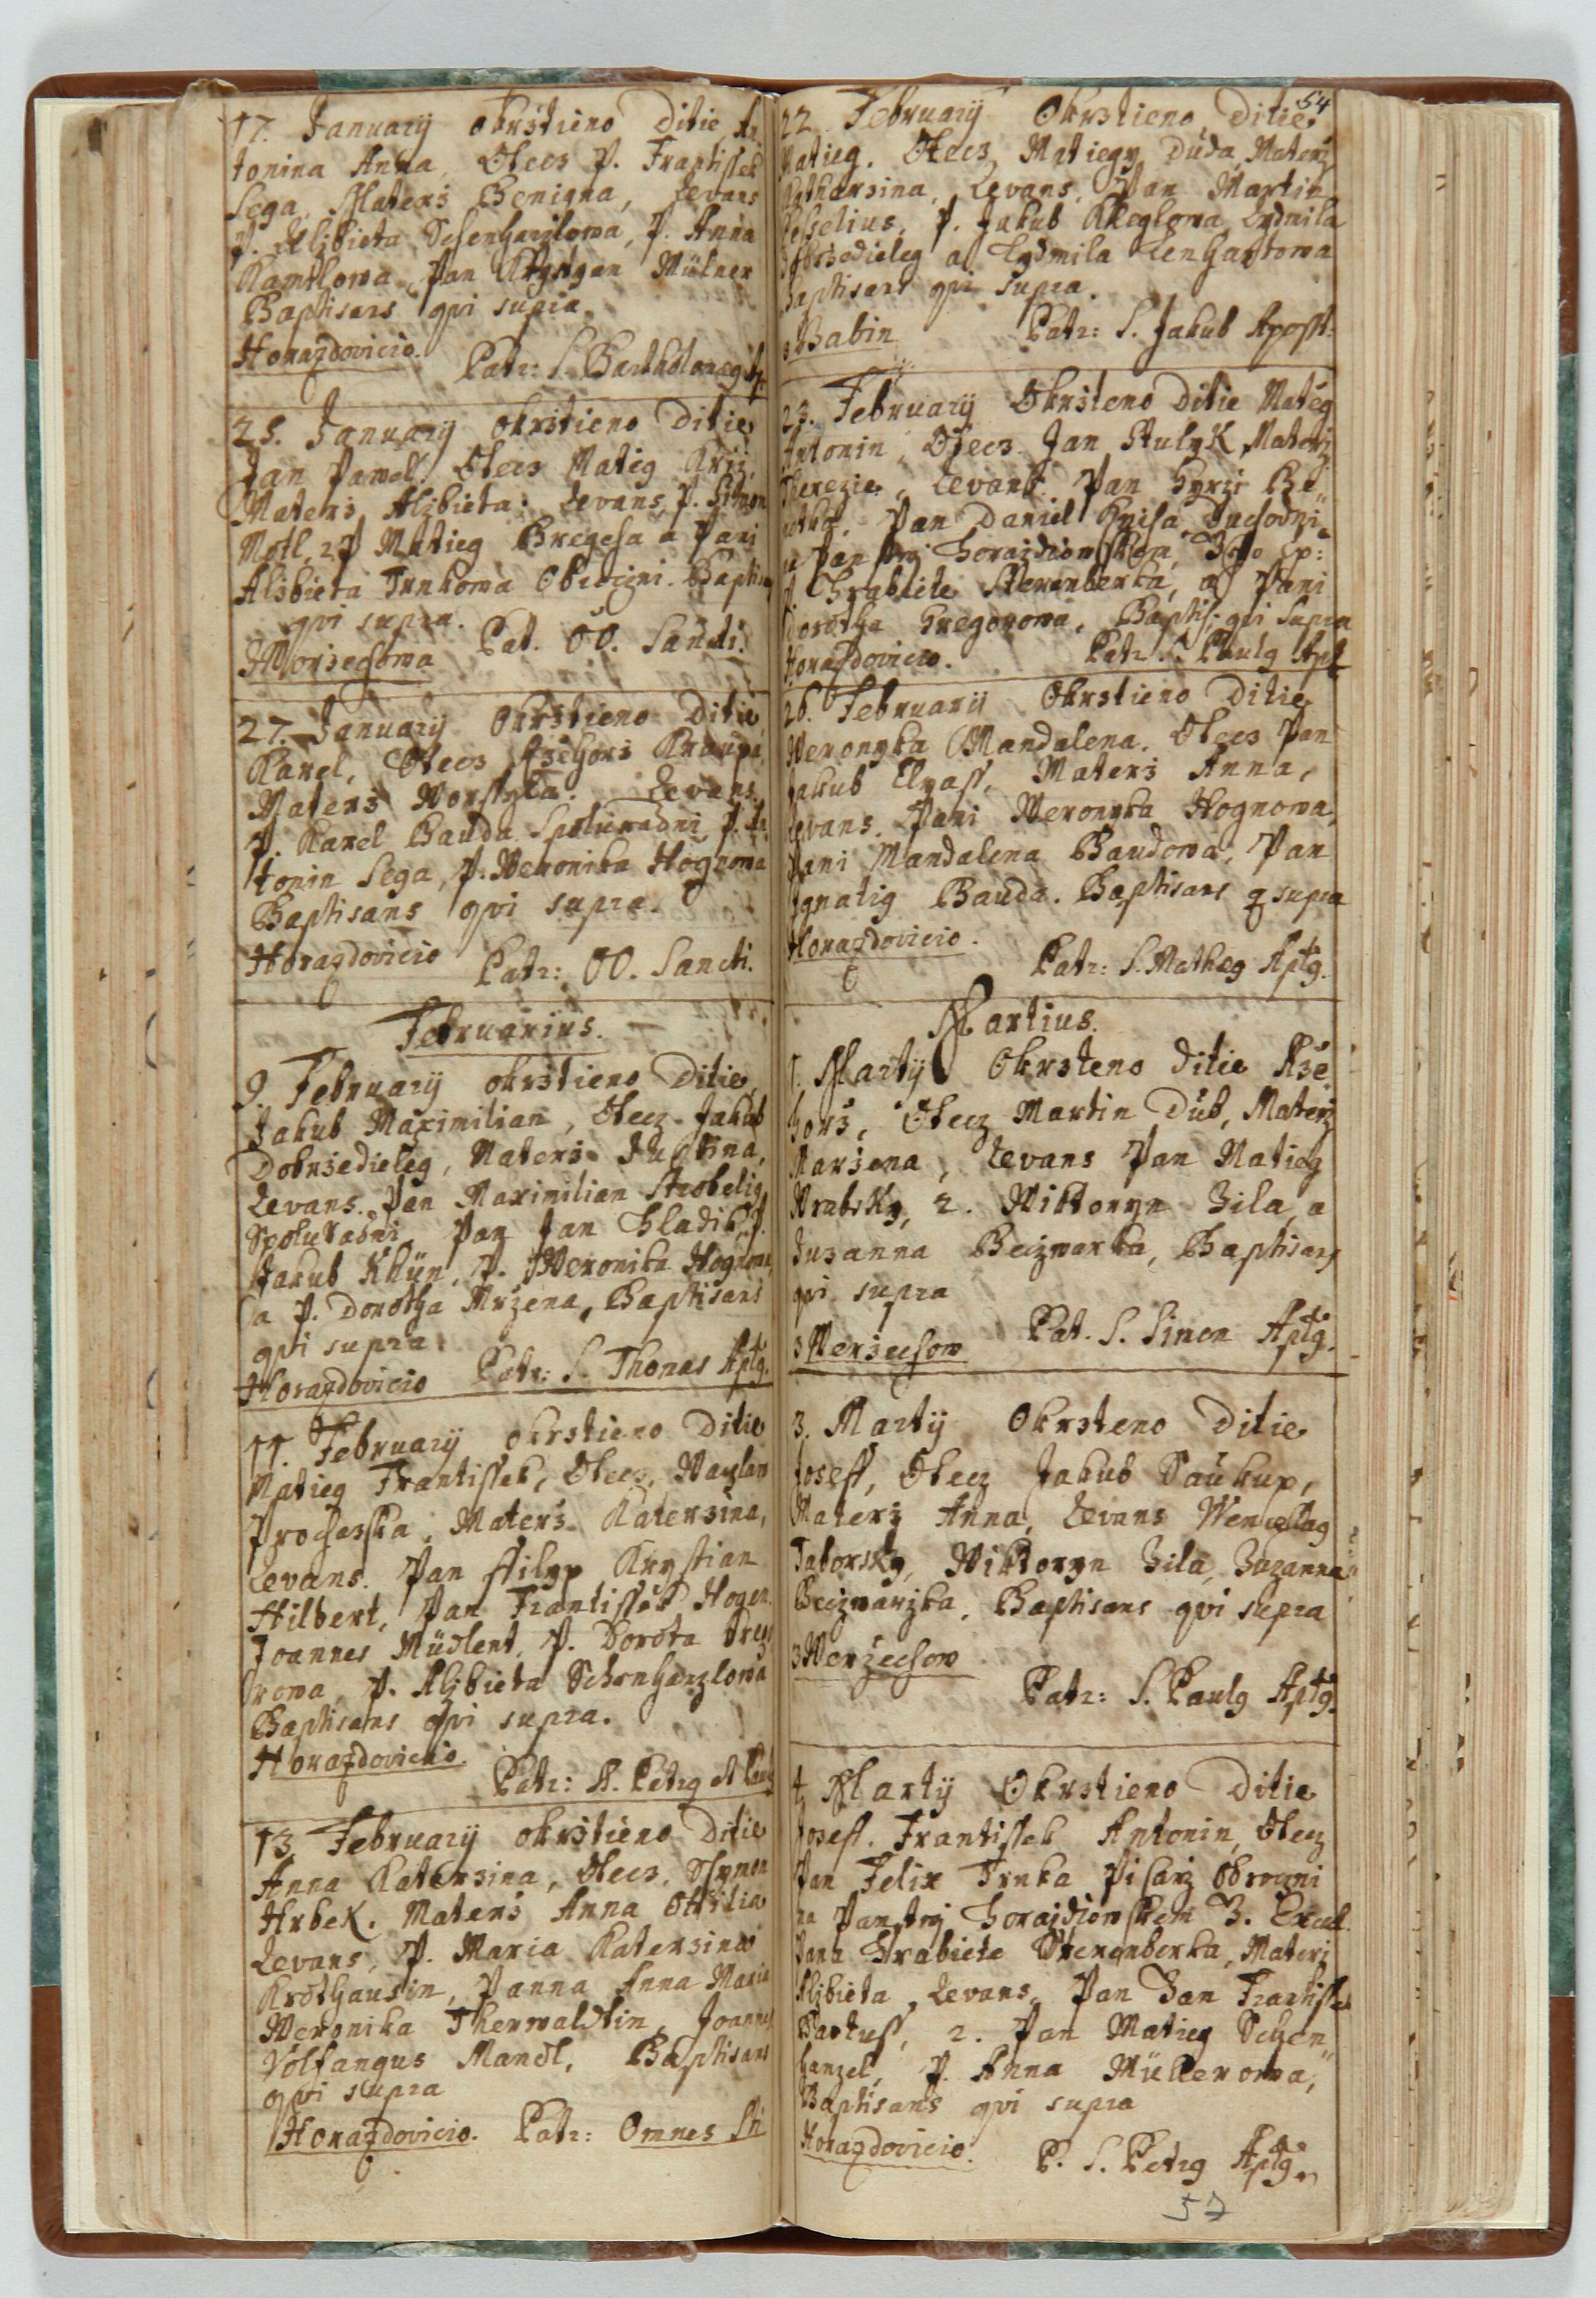 17. January okrstieno Ditie An
tonina Anna, Otecz P. Frantissek
Sega, Materz Benigna, Levans
P. Alzbieta Schenhanzlowa, P. Anna
Pan Müllner
Baptisans qvi supra.
Horazdovicio. Patr: S. Bartholomeg Ap.
25. January okrstieno Ditie
Jan Pawel. Otecz Matieg Krziz,
Materz Alzbieta. Levans, P. Simon
Motl, 2 P Matieg Bregcha a Pani
Alzbieta Trnkowa Obroczni. Baptisans
qvi supra. Pat. OO. Sancti.
Worzechowa
27. January okrstieno Ditie
Karel, Otecz Rzehorz Kraupa,
Materz Worssyla. Levans.
P. Karel Bauda Spoluradni, P. An
tonin Sega, P. Weronika Hognowa
Baptisans qvi supra.
Horazdovicio Patr: OO. Sancti.
Februarius.
9. February okrstieno Ditie,
Jakub Maximilian, Otecz Jakub
Dobrzedieleg, Materz Justina,
Levans. Pan Maximilian Strobelig
Spoluradni, Pan Jan Hladik, P.
Jakub Khün, P. Weronika Hognowa,
a P. Dorotha Mrzena, Baptisans
qvi supra.
Horazdovicio Patr: S. Thomas Aptg.
11. February okrstieno Ditie
Matieg Frantissek, Otecz, Waczlaw
Prochaska, Materz Katerzina,
Levans. Pan Filyp Krystian
Hilbert, Pan Frantissek Hogen.
Joannes Müdlent, P. Dorota Greg
rowa, P. Alzbieta Schonhanzlowa
Baptisans qvi supra.
Horazdovicio.
Patr: S. Petrg et Paulg
13. February okrstieno Ditie
Anna Katerzina, Otecz, Ssymon
Hrbek. Materz Anna Ottilia
Levans, P. Maria Katerzina
Krothausin, Panna Anna Maria
Weronika Therwaldtin, Joannes
Volfangus Mandl, Baptisans
qvi supra
Horazdovicio. Patr: Omnes Sti
54
22. February Okrstieno Ditie
Matieg. Otecz Matiegy Duda, Materz
Katharzina, Levans, Pan Martin
Pesselius, P. Jakub Ludmila
Dobrzedieleg a Lydmila Lenhartowa
Baptisans qvi supra.
z Babin Patr: S. Jakub Apost:
23. February Okrsteno Ditie Mateg
Antonin, Otecz Jan Stulyk, Materz
Therezie, Levans. Pan Gyrzi Be„
Pan Daniel Knisa Duchodni
na Panstwj Horazdiowskem,
Hrabiete Sterenberka, a Pani
Dorotha Gregorowa, Baptis: qvi Supra
Horazdovicio. Patr. S. Paulg Apt
26. February Okrstieno Ditie
Weronyka Mandalena. Otecz Pan
Jakub Elyass, Materz Anna,
Levans. Pani Weronyka Hognowa,
Pani Mandalena Baudowa, Pan
Ignatig Bauda. Baptisans q supra
Horazdovicio.
Patr: S. Matheg Aptg.
Martius.
1. Marty Okrsteno Ditie Rze
horz, Otecz Martin Dub, Materz
Marzena, Levans Pan Matieg
Wrabsky, 2. Wiktoryn Zila, a
Zuzanna Beczwarka, Baptisans
qvi supra
z Werzechow Pat. S. Simon Aptg.
3. Marty Okrsteno Ditie
Joseff, Otecz Jakub Saukup,
Materz Anna, Levans Wencesllag
Taborsky, Wiktoryn Zila, Zuzanna
Beczwarzka, Baptisans qvi supra
z Werzechow
Patr: S. Paulg Aptg.
4. Marty Okrstieno Ditie
Joseff. Frantissek Antonin, Otecz
Pan Felix Trnka Pisarz Obroczni
na Panstwj Horazdiowskem J. Excel.
Pana Hrabiete Sterenberka, Materz
Alzbieta, Levans, Pan Jan Frantissek
Bartuss, 2. Pan Matieg Schen„
hanzel, P. Anna Müllerowa,
Baptisans qvi supra
Horazdovicio. P. S. Petrg Aptg.
57